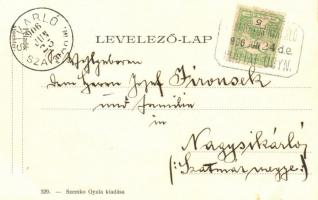 SIKÁRLÓ
906
JUN
SZAT
LEVELEZŐ-LAP
906 JUN 24 d.e.
Wohlgeboren
dem Herrn Josef Fironsek
und Familie
in
Nagysikárló
(: Szatmár megye :)
320. — Szenke Gyula kiadása